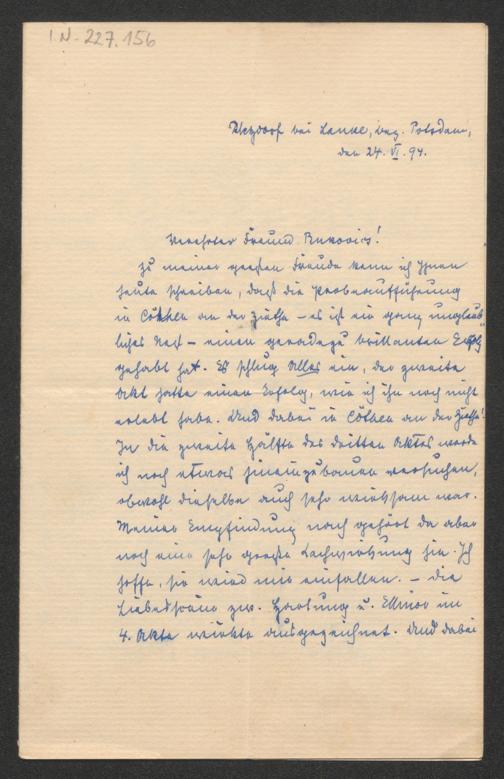 I.N. 227.156
bei Lanke, bez. Potsdam,
den 24. VI. 94.
Verehrter Freund Bukovics!
Zu meiner großen Freude kann ich Ihnen
heute schreiben, daß die Probeaufführung
in Cöthen an der Ziethe – es ist ein ganz unglaub„
liches Nest – einen geradezu brillanten Erfolg
gehabt hat. Es schlug Alles ein, der zweite
Akt hatte einen Erfolg, wie ich ihn noch nicht
erlebt habe. Und dabei in Cöthen an der Ziethe!
In die zweite Hälfte des dritten Aktes werde
ich noch etwas hineinzubauen versuchen,
obwohl dieselbe auch sehr wirksam war.
Meiner Empfindung nach gehört da aber
noch eine sehr große Lachwirkung hin. Ich
hoffe, sie wird mir einfallen. – Die
Liebesscene zw. u. Ellinor im
4. Akte wirkte ausgezeichnet. Und dabei